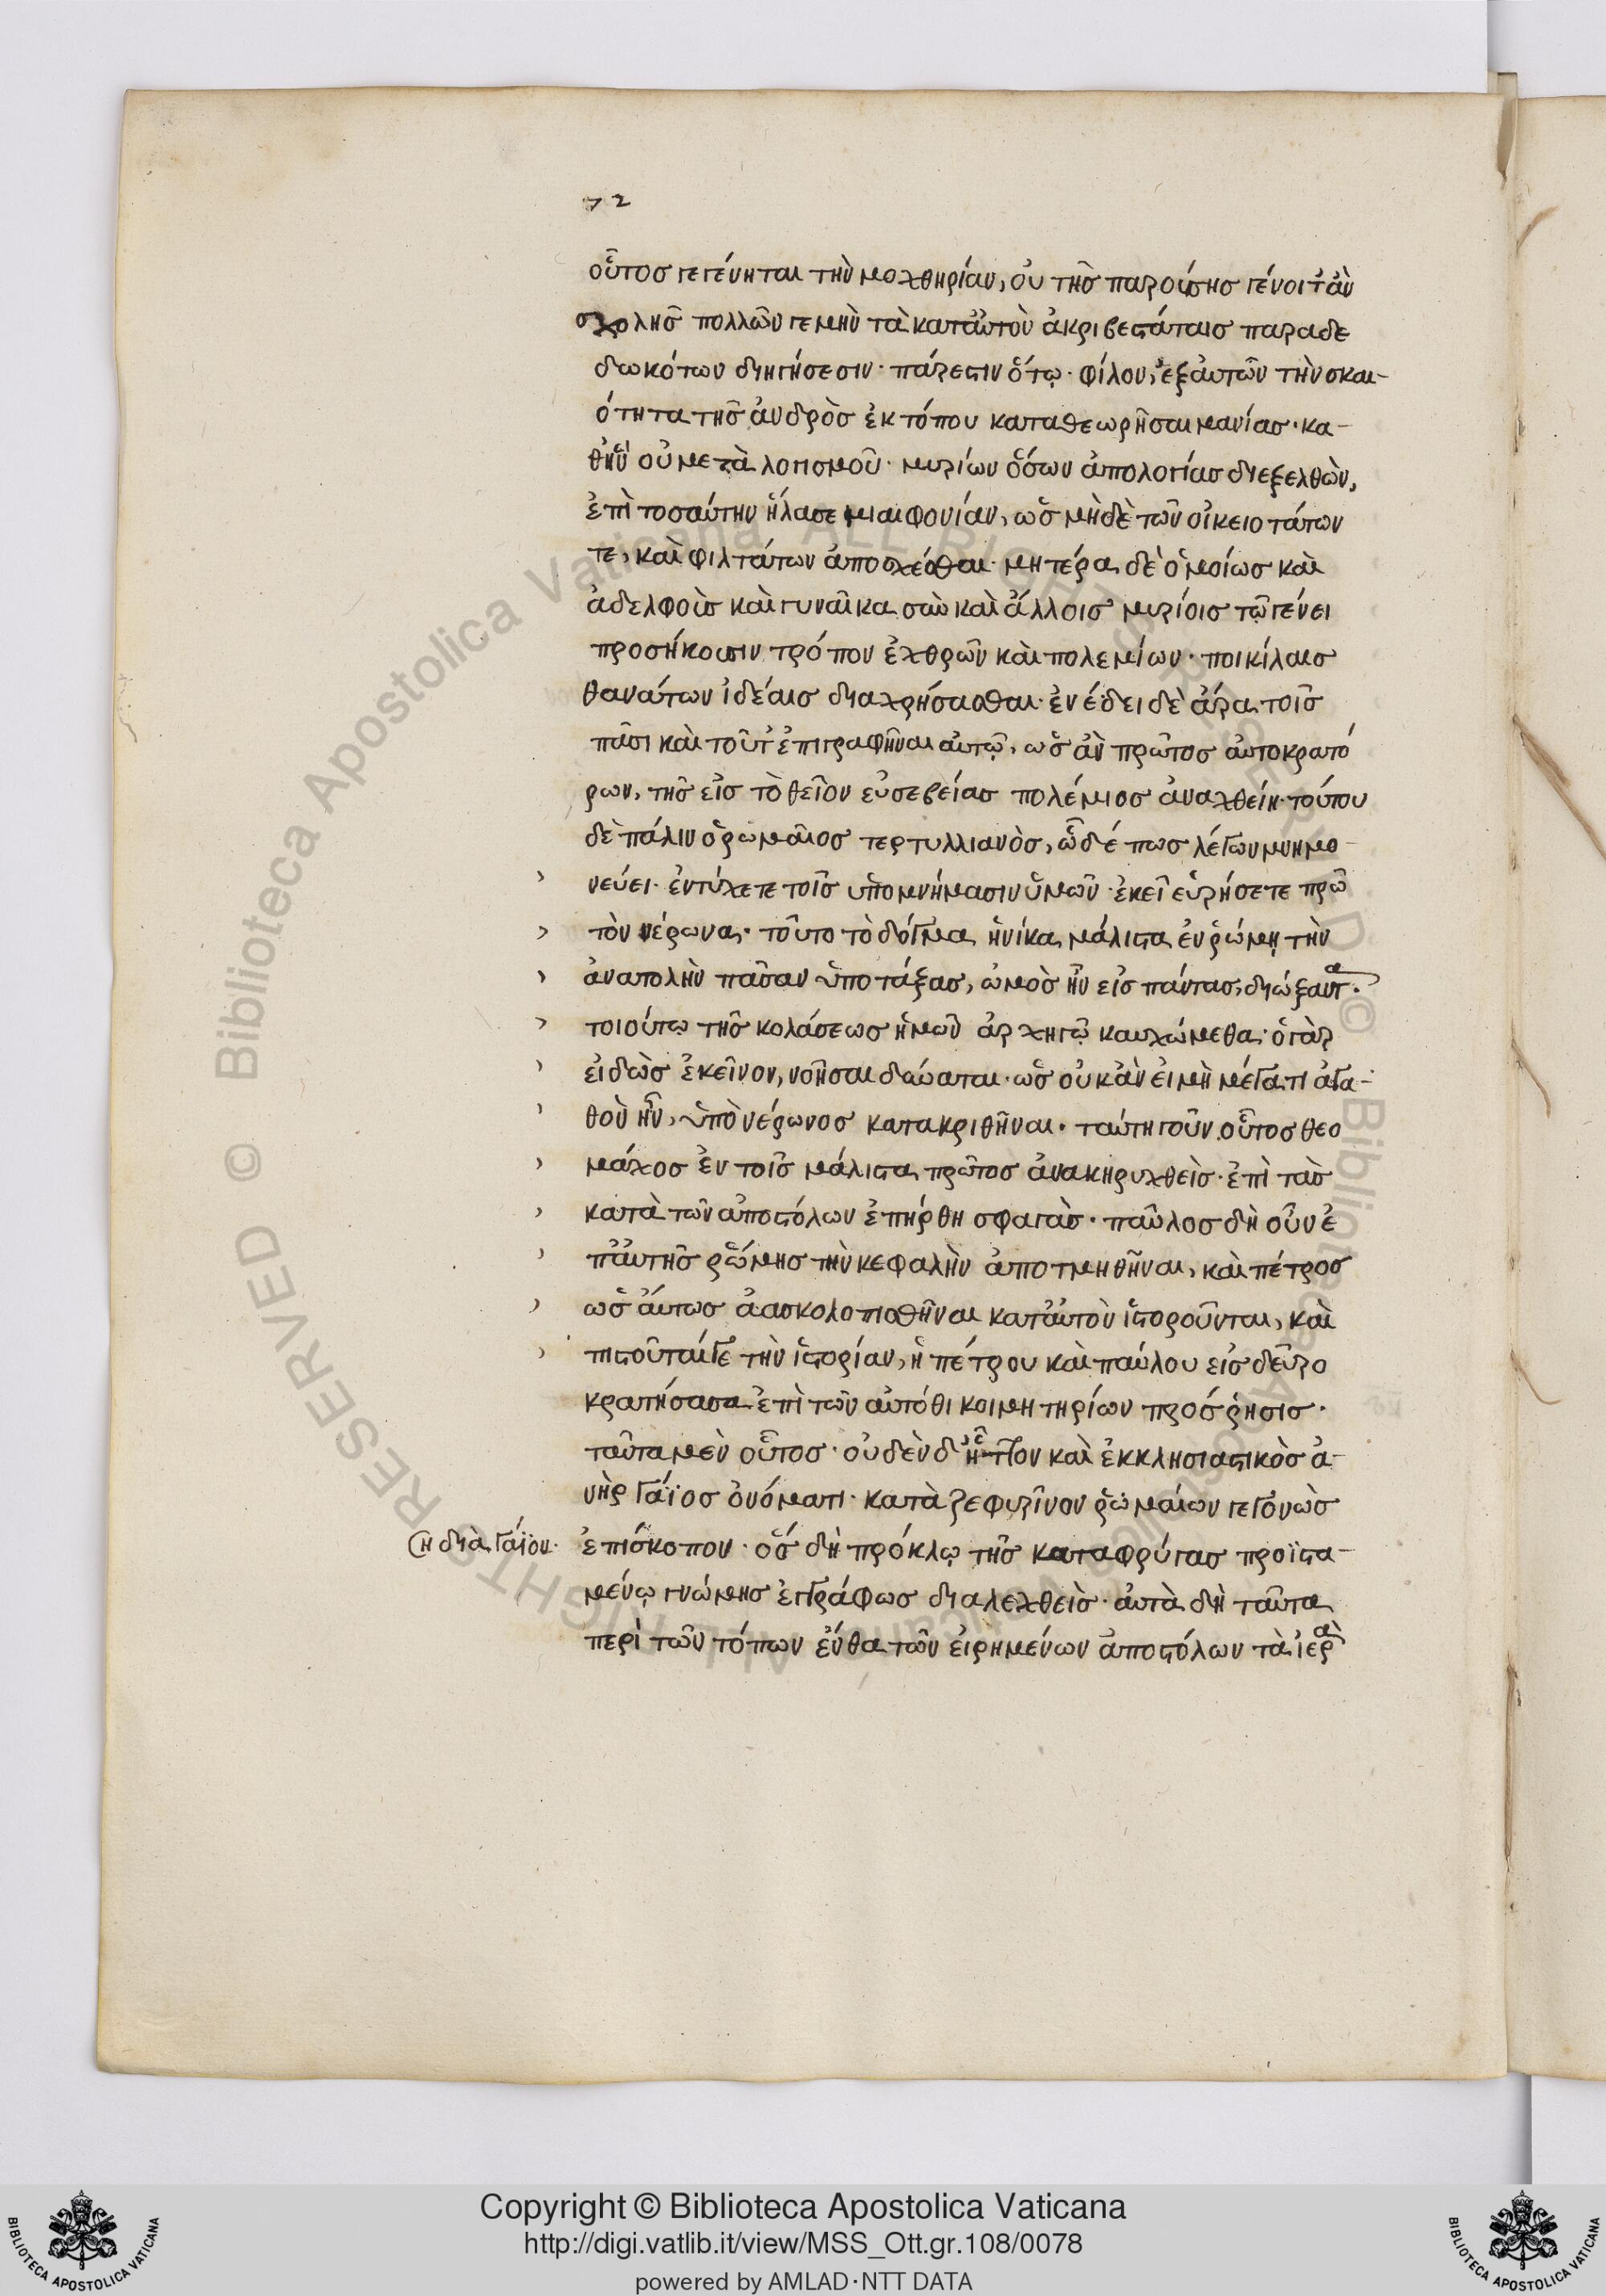 72
οὗτος γεγένηται τὴν μοχθηρίαν, οὐ τῆς παρούσης γένοιτ' ἂν
σχολῆς πολλῶν γε μὴν τὰ κατ' αὐτὸν ἀκριβεστάταις παραδε
δωκότων διηγήσεσιν· πάρεστιν ὅτῳ· φίλον, ἐξ αὐτῶν τὴν σκαι-
ότητα τῆς ἀνδρὸς ἐκτόπου καταθεωρῆσαι μανίας· κα-
θ' ἣν οὐ μετὰ λογισμοῦ· μυρίων ὅσων ἀπολογίας διεξελθὼν,
ἐπὶ τοσαύτην ἤλασε μιαιφονίαν, ὡς μὴ δὲ τῶν οἰκειοτάτων
τε, καὶ φιλτάτων ἀποσχέσθαι· μητέρα δὲ ὁμοίως καὶ
ἀδελφοὺς καὶ γυναῖκα σὺν καὶ ἄλλοις μυρίοις τῷ γένει
προσήκουσιν τρόπον ἐχθρῶν καὶ πολεμίων· ποικίλαις
θανάτων ἰδέαις διαχρήσασθαι· ἐνέδει δὲ ἄρα τοῖς
πᾶσι καὶ τοῦτ' ἐπιγραφῆναι αὐτῷ, ὡς ἂν πρῶτος αὐτοκρατό
ρων, τῆς εἰς τὸ θεῖον εὐσεβείας πολέμιος ἀναχθείη· τούτου
δὲ πάλιν ὁ ῥωμαῖος τερτυλλιανὸς, ὧδέ πως λέγων μνημο-
νεύει· ἐντύχετε τοῖς ὑπομνήμασιν ὑμῶν· ἐκεῖ εὑρήσετε πρῶ
τον νέρωνα· τοῦτο τὸ δόγμα ἡνίκα μάλιστα ἐν ῥώμῃ τὴν
ἀνατολὴν πᾶσαν ὑποτάξας, ὠμὸς ἦν εἰς πάντας, διώξαντα·
τοιούτῳ τῆς κολάσεως ἡμῶν ἀρχηγῷ καυχώμεθα· ὁ γὰρ
εἰδὼς ἐκεῖνον, νοῆσαι δύναται· ὡς οὐκ ἂν εἰ μὴ μέγα τι ἀγα-
θὸν ἦν, ὑπὸ νέρωνος κατακριθῆναι· ταύτῃ γοῦν οὗτος θεο
μάχος ἐν τοῖς μάλιστα πρῶτος ἀνακηρυχθεὶς· ἐπὶ τὰς
κατὰ τῶν ἀποστόλων ἐπήρθη σφαγὰς· παῦλος δὴ οὖν ἐ
π' αὐτῆς ῥώμης τὴν κεφαλὴν ἀποτμηθῆναι, καὶ πέτρος
ὡς αὔτως ἀασκολοπισθῆναι κατ' αὐτὸν ἱστοροῦνται, καὶ
πιστοῦταί γε τὴν ἱστορίαν, ἡ πέτρου καὶ παύλου εἰς δεῦρο
κρατήσασα ἐπὶ τῶν αὐτόθι κοιμητηρίων πρόσρησις·
ταῦτα μὲν οὗτος· οὐδὲν δ' ἧττον καὶ ἐκκλησιαστικὸς ἀ-
νὴρ Γάϊος ὀνόματι· κατὰ ζεφυρῖνον ῥωμαίων γεγονὼς
ἡ διὰ Γαΐου· ἐπίσκοπον· ὃς δὴ πρόκλῳ τῆς καταφρύγας προϊστα-
μένῳ γνώμης ἐγγράφως διαλεχθεὶς· αὐτὰ δὴ ταῦτα
περὶ τῶν τόπων ἔνθα τῶν εἰρημένων ἀποστόλων τὰ ἱερὰ
Copyright © Biblioteca Apostolica Vaticana
http://digi.vatlib.it/view/MSS_Ott.gr.108/0078
powered by AMLAD·NTT DATA